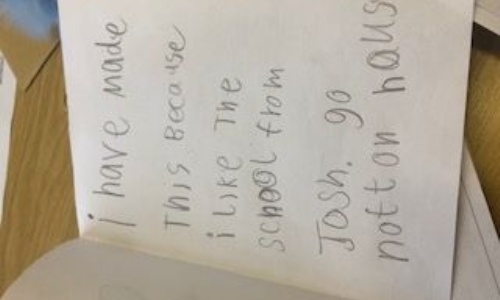 i have made
This Because
i like The
school from
Josh. go
notton haus